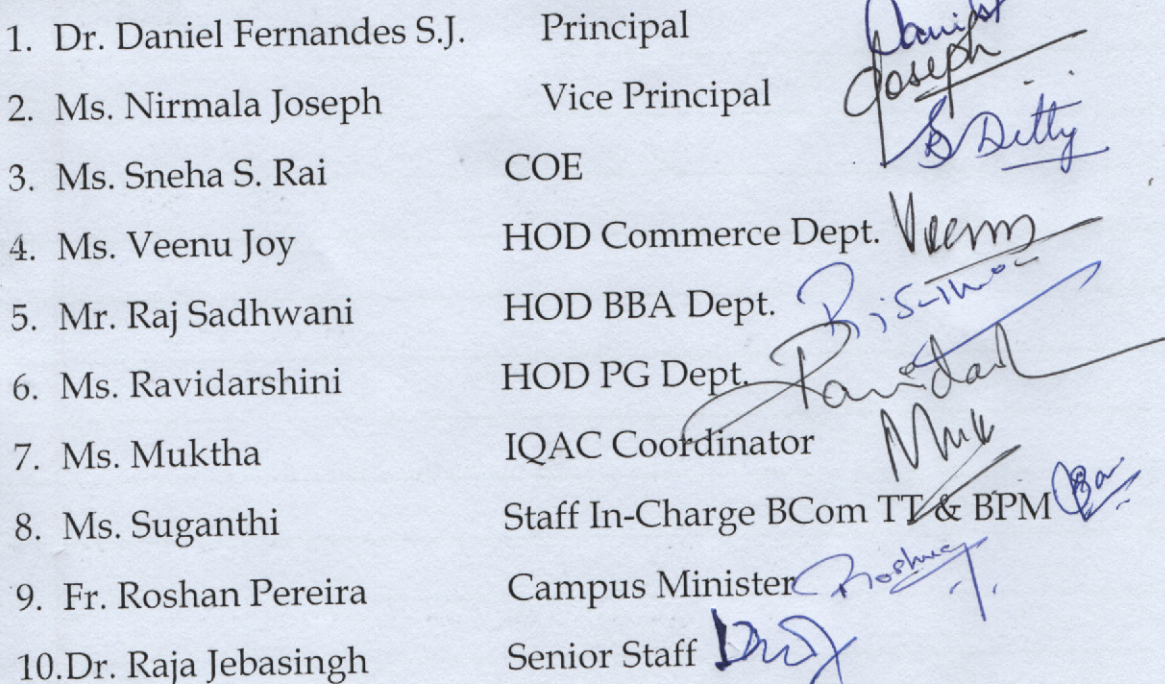 1. Dr. Daniel Fernandes S.J. Principal
2. Ms. Nirmala Joseph Vice Principal Joseph
3. Ms. Sneha S. Rai COE Ditty
4. Ms. Veenu Joy HOD Commerce Dept. Veenu
5. Mr. Raj Sadhwani HOD BBA Dept.
6. Ms. Ravidarshini HOD PG Dept.
7. Ms. Muktha IQAC Coordinator
8. Ms. Suganthi Staff In-Charge BCom TT & BPM
9. Fr. Roshan Pereira Campus Minister
10.Dr. Raja Jebasingh Senior Staff